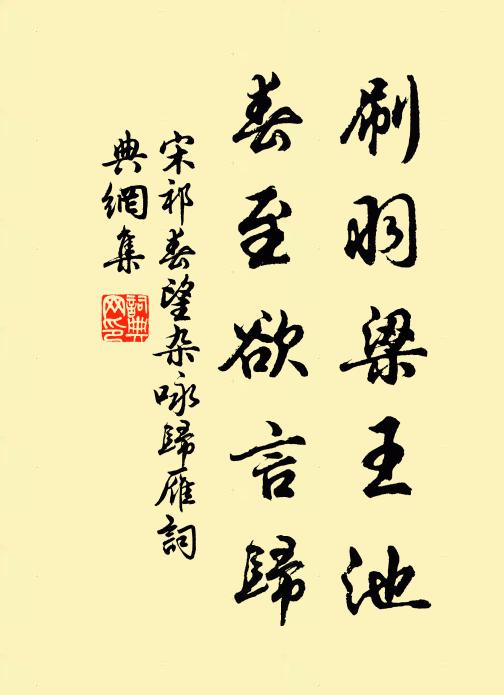 刷羽梁王池
春至欲言歸
宋祁春望杂咏歸雁詞
典網集
詞典
网印